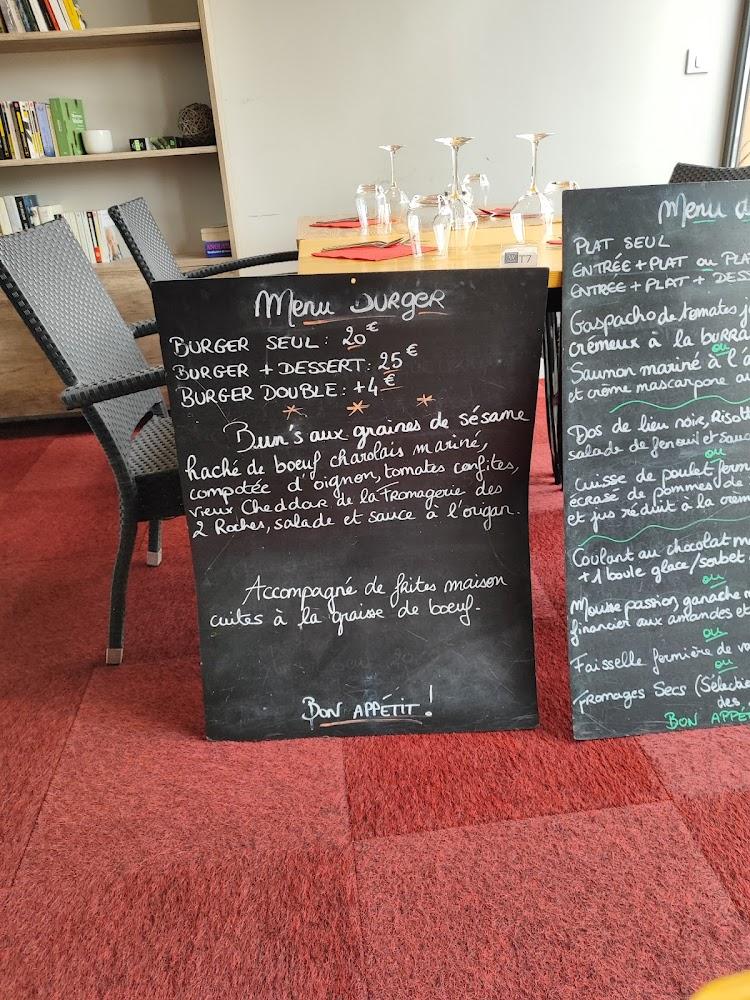 Menu BURGER
BURGER SEUL: 20€
BURGER + DESSERT: 25€
BURGER DOUBLE: +4€
Bun's aux graines de sésame
haché de boeuf charolais mariné,
compotée d'oignon, tomates confites,
vieux Cheddar de la Fromagerie des
2 Roches, salade et sauce à l'origan.
Accompagné de frites maison
cuites à la graisse de boeuf.
BON APPÉTIT!
Menu
PLAT SEUL
ENTRÉE+PLAT ou
ENTREE+PLAT+
Gaspacho de tomates
crémeux à la burra
ou
Saumon mariné à l'a
et crème mascarpone
Dos de lieu noir,
salade de fenouil et
ou
cuisse de poulet
écrasé de pommes de
et jus réduit à la
Coulant au chocolat
+1 boule glace/sorbet
ou
Mousse passion, ganache
financier aux amandes et
ou
Faisselle fermière de
ou
Fromages Secs (Sélecti
des
BON APPÉ
T7